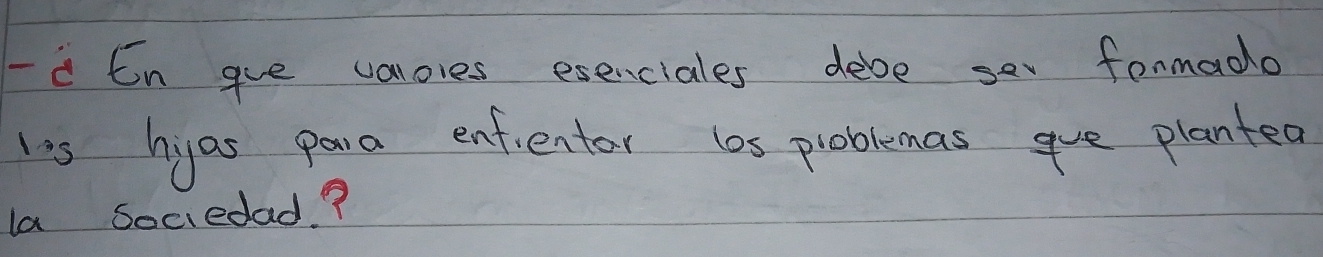 -¿ En que valores esenciales debe ser formado
los hijas para enfrentar los problemas que plantea
la sociedad.?